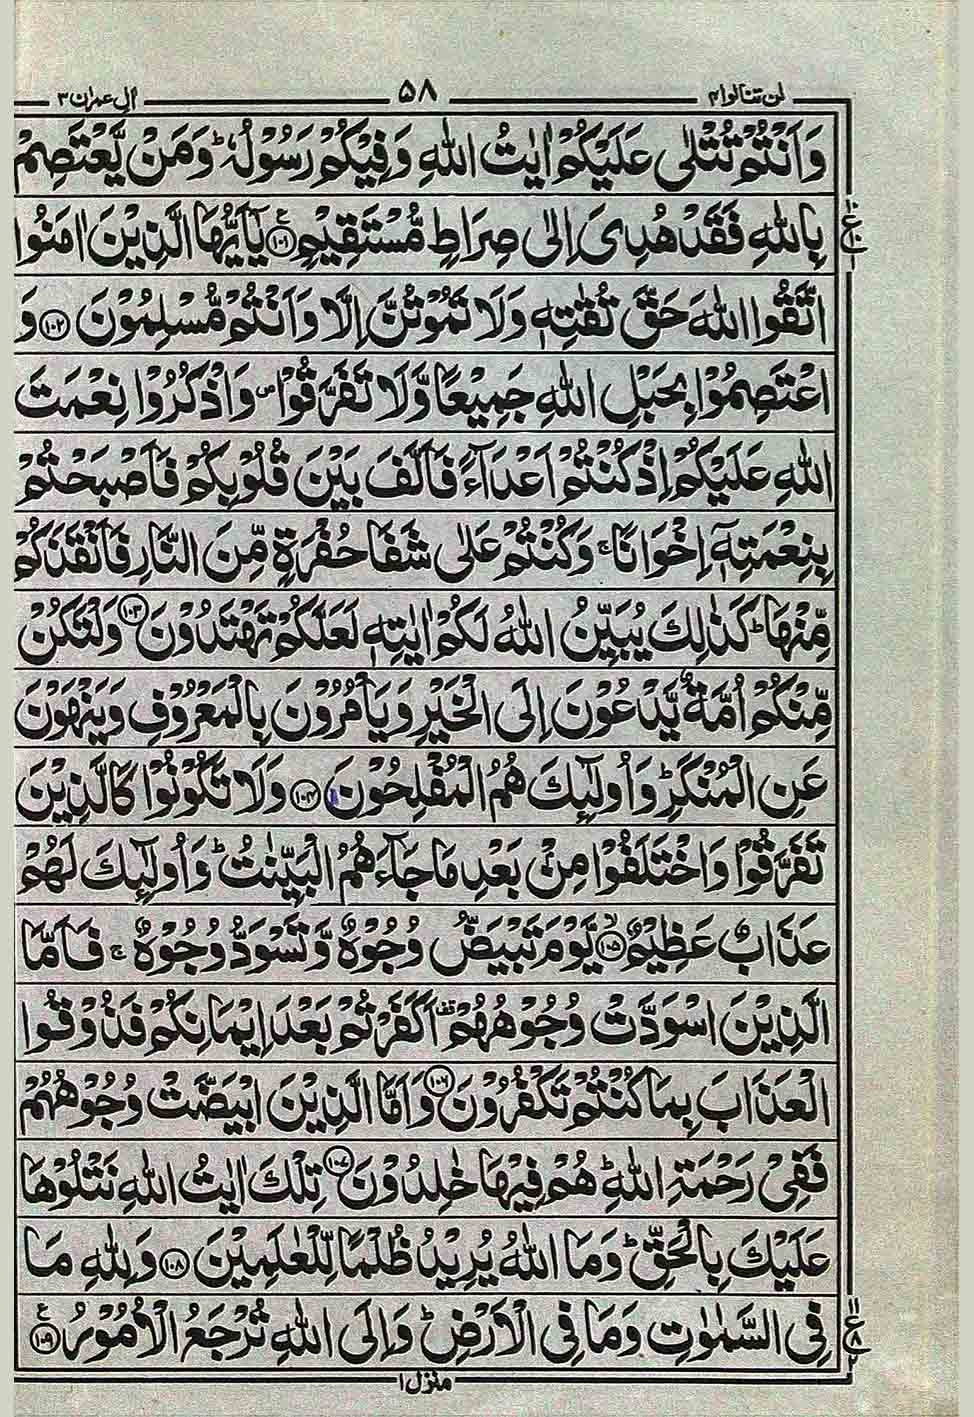 لن تنالوا ۴ ۵۸ اٰل عمرٰن ۳
وَاَنْتُمْ تُتْلٰى عَلَيْكُمْ اٰيٰتُ اللّٰهِ وَفِيْكُمْ رَسُوْلُهٗ ؕ وَمَنْ يَّعْتَصِمْ
بِاللّٰهِ فَقَدْ هُدِىَ اِلٰى صِرَاطٍ مُّسْتَقِيْمٍ ﴿۱۰۱﴾ ع يٰۤاَيُّهَا الَّذِيْنَ اٰمَنُوا
اتَّقُوا اللّٰهَ حَقَّ تُقٰتِهٖ وَلَا تَمُوْتُنَّ اِلَّا وَاَنْتُمْ مُّسْلِمُوْنَ ﴿۱۰۲﴾ وَ
اعْتَصِمُوْا بِحَبْلِ اللّٰهِ جَمِيْعًا وَّلَا تَفَرَّقُوْا ص وَاذْكُرُوْا نِعْمَتَ
اللّٰهِ عَلَيْكُمْ اِذْ كُنْتُمْ اَعْدَآءً فَاَلَّفَ بَيْنَ قُلُوْبِكُمْ فَاَصْبَحْتُمْ
بِنِعْمَتِهٖۤ اِخْوَانًا ۚ وَكُنْتُمْ عَلٰى شَفَا حُفْرَةٍ مِّنَ النَّارِ فَاَنْقَذَكُمْ
مِّنْهَا ؕ كَذٰلِكَ يُبَيِّنُ اللّٰهُ لَكُمْ اٰيٰتِهٖ لَعَلَّكُمْ تَهْتَدُوْنَ ﴿۱۰۳﴾ وَلْتَكُنْ
مِّنْكُمْ اُمَّةٌ يَّدْعُوْنَ اِلَى الْخَيْرِ وَيَاْمُرُوْنَ بِالْمَعْرُوْفِ وَيَنْهَوْنَ
عَنِ الْمُنْكَرِ ؕ وَاُولٰٓئِكَ هُمُ الْمُفْلِحُوْنَ ﴿۱۰۴﴾ وَلَا تَكُوْنُوْا كَالَّذِيْنَ
تَفَرَّقُوْا وَاخْتَلَفُوْا مِنْۢ بَعْدِ مَا جَآءَهُمُ الْبَيِّنٰتُ ؕ وَاُولٰٓئِكَ لَهُمْ
عَذَابٌ عَظِيْمٌ ﴿۱۰۵﴾ ۙ يَّوْمَ تَبْيَضُّ وُجُوْهٌ وَّتَسْوَدُّ وُجُوْهٌ ۚ فَاَمَّا
الَّذِيْنَ اسْوَدَّتْ وُجُوْهُهُمْ قف اَكَفَرْتُمْ بَعْدَ اِيْمَانِكُمْ فَذُوْقُوا
الْعَذَابَ بِمَا كُنْتُمْ تَكْفُرُوْنَ ﴿۱۰۶﴾ وَاَمَّا الَّذِيْنَ ابْيَضَّتْ وُجُوْهُهُمْ
فَفِىْ رَحْمَةِ اللّٰهِ ؕ هُمْ فِيْهَا خٰلِدُوْنَ ﴿۱۰۷﴾ تِلْكَ اٰيٰتُ اللّٰهِ نَتْلُوْهَا
عَلَيْكَ بِالْحَقِّ ؕ وَمَا اللّٰهُ يُرِيْدُ ظُلْمًا لِّلْعٰلَمِيْنَ ﴿۱۰۸﴾ وَلِلّٰهِ مَا
فِى السَّمٰوٰتِ وَمَا فِى الْاَرْضِ ؕ وَاِلَى اللّٰهِ تُرْجَعُ الْاُمُوْرُ ﴿۱۰۹﴾ ع
منزل ۱